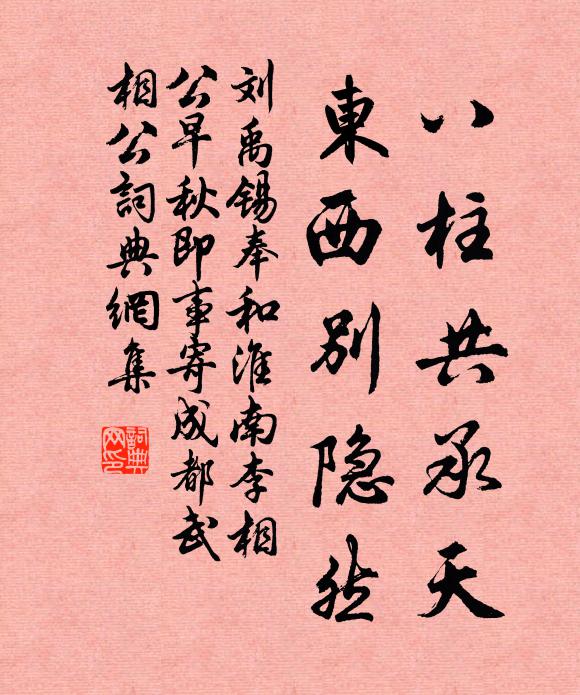 八柱共承天
東西別隐然
刘禹锡奉和淮南李相
公早秋即事寄成都武
相公詞典網集
詞典
网印